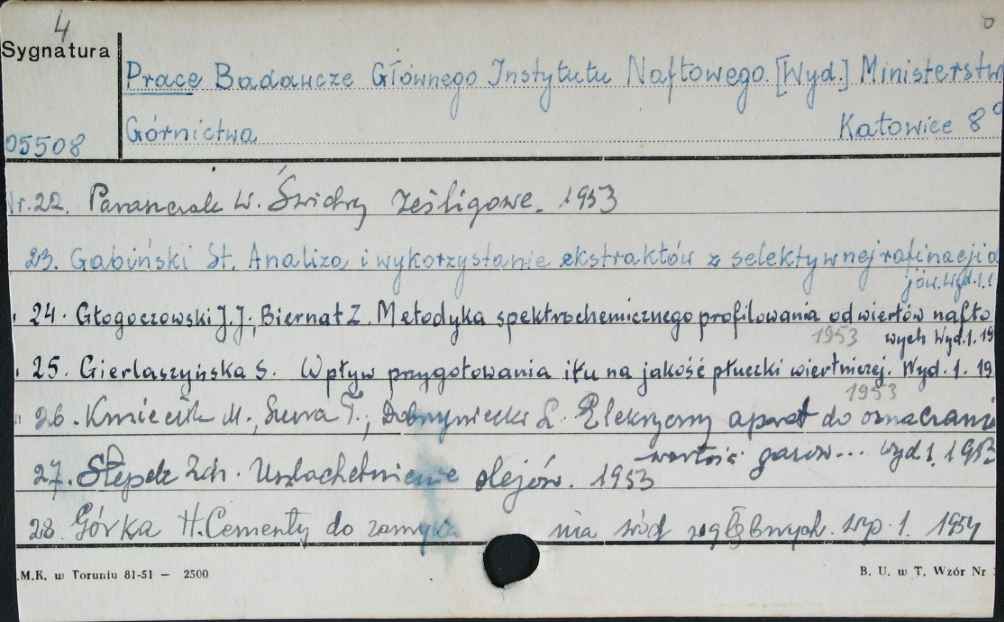 4
Sygnatura
Prace Badawcze Głównego Instytutu Naftowego. [Wyd.] Ministerstw
Górnictwa Katowice 8°
05508
Nr.22. W. Świdry ześligowe. 1953
23. Gabiński St. Analiza i wykorzystanie ekstraktów z selektywnej rafinacji o
jów. Wyd. 1.
24. Głogoczowski J.J., Biernat Z. Metodyka spektrochemicznego profilowania odwiertów nafto
1953 wych Wyd. 1. 19
25. Gierlaszyńska S. Wpływ przygotowania iłu na jakość płuczki wiertniczej. Wyd. 1. 19
1953
26. Kmiecik M., Suwa T., L. aparat do oznaczani
wartość gazów... Wyd. 1. 1953
27. Ślepek Zdz. Uszlachetnienie olejów. 1953
28. Górka H. Cementy do zamyk nia wód wgłębnych. 1. 1954
.M.K. w Toruniu 81-51 — 2500
B. U. w T. Wzór Nr